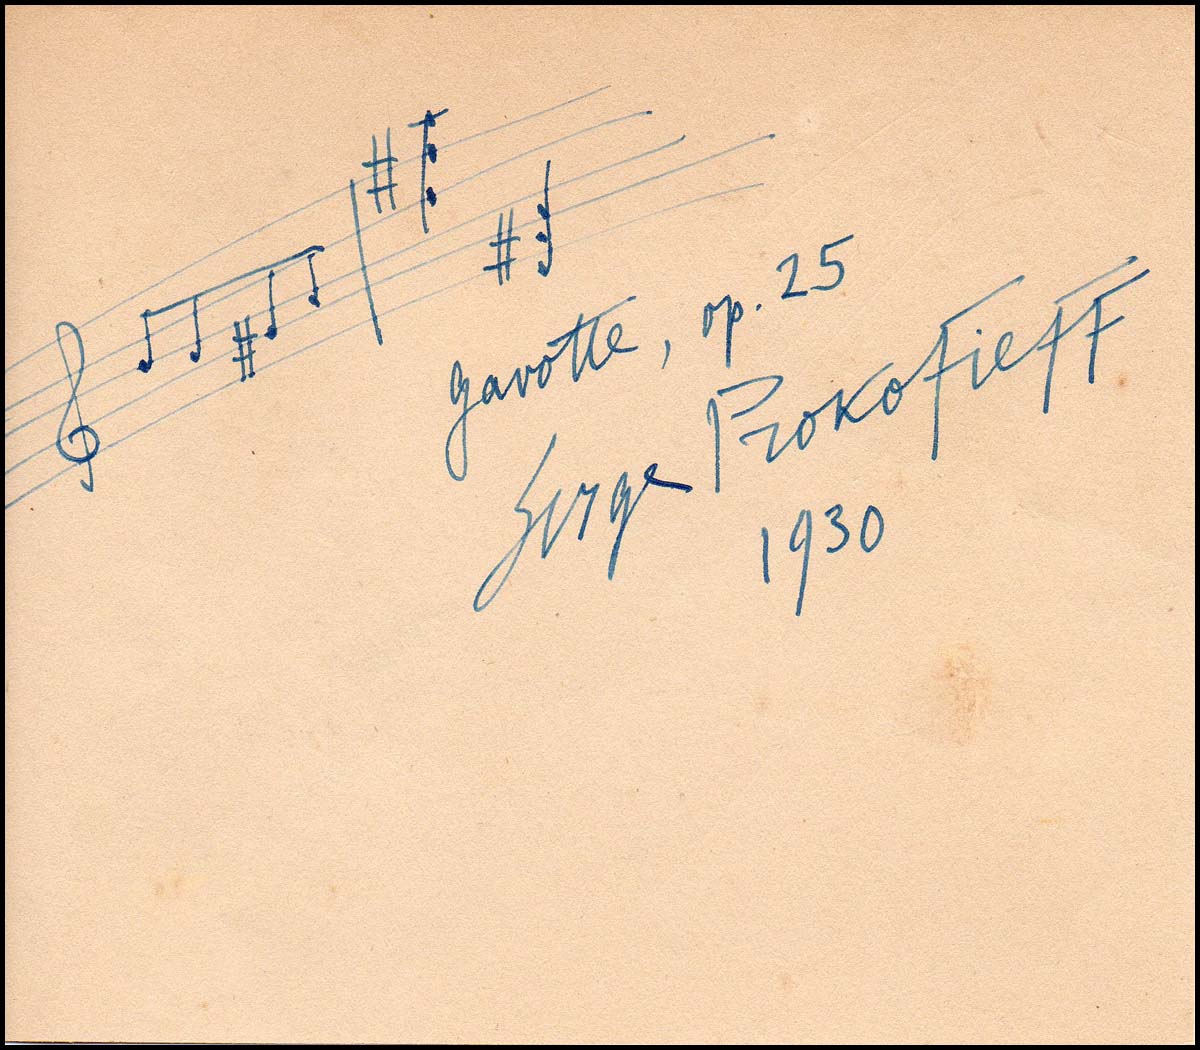 gavotte, op. 25
Serge Prokofieff
1930